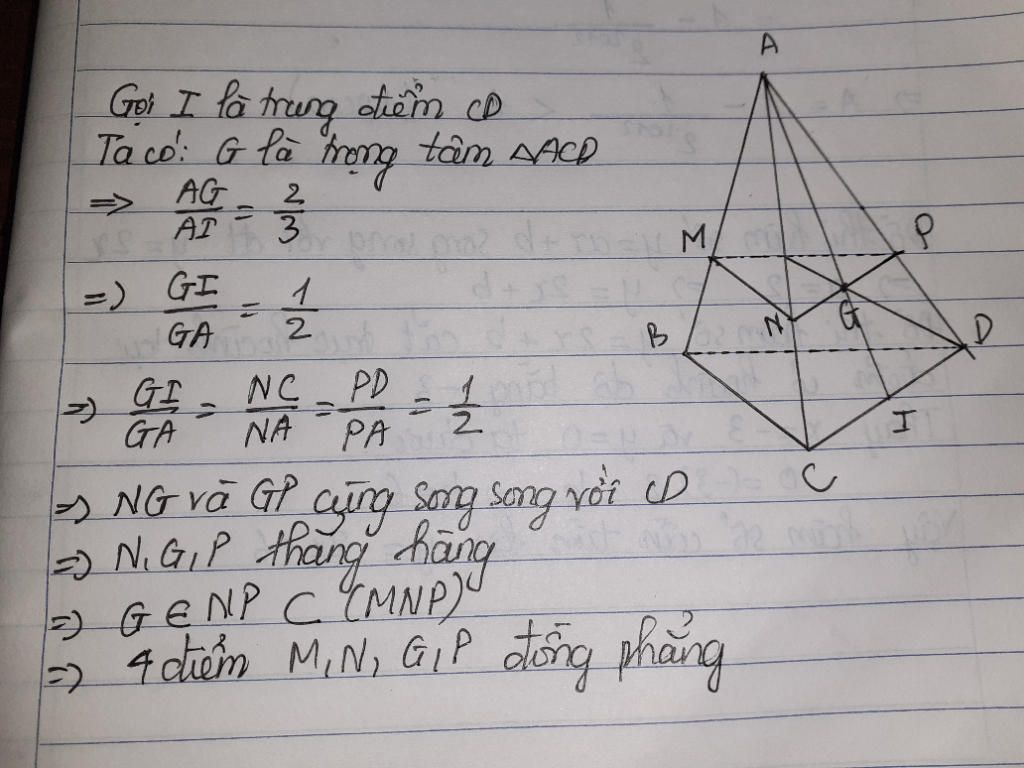 Gọi I là trung điểm CD
Ta có: G là trọng tâm △ACD
=> AG/AI = 2/3
=> GI/GA = 1/2
=> GI/GA = NC/NA = PD/PA = 1/2
=> NG và GP cùng song song với CD
=> N, G, P thẳng hàng
=> G ∈ NP ⊂ (MNP)
=> 4 điểm M, N, G, P đồng phẳng
A
M
P
N
G
B
D
I
C